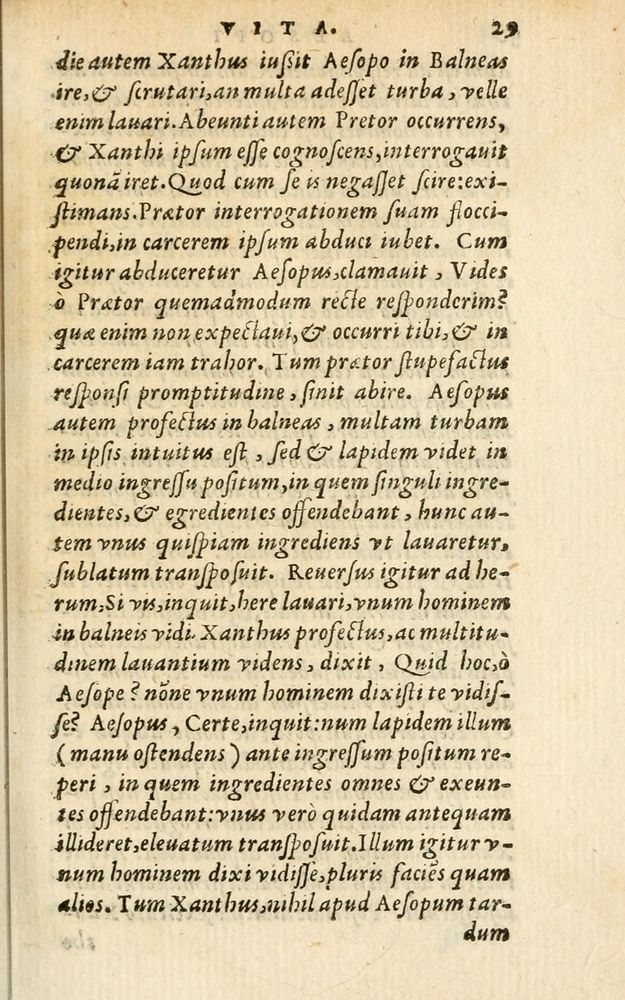 VITA. 29
die autem Xanthus iuſſit Aeſopo in Balneas
ire, & ſcrutari, an multa adeſſet turba, velle
enim lauari. Abeunti autem Pretor occurrens,
& Xanthi ipſum eſſe cognoſcens, interrogauit
quonã iret. Quod cum ſe is negaſſet ſcire: exi-
ſtimans. Prætor interrogationem ſuam flocci-
pendi, in carcerem ipſum abduci iubet. Cum
igitur abduceretur Aeſopus, clamauit, Vides
ò Prætor quemadmodum recte reſponderim?
quæ enim non expectaui, & occurri tibi, & in
carcerem iam trahor. Tum prætor ſtupefactus
reſponſi promptitudine, ſinit abire. Aeſopus
autem profectus in balneas, multam turbam
in ipſis intuitus eſt, ſed & lapidem videt in
medio ingreſſu poſitum, in quem ſinguli ingre-
dientes, & egredientes offendebant, hunc au-
tem vnus quiſpiam ingrediens vt lauaretur,
ſublatum tranſpoſuit. Reuerſus igitur ad he-
rum, Si vis, inquit, here lauari, vnum hominem
in balneis vidi. Xanthus profectus, ac multitu-
dinem lauantium videns, dixit, Quid hoc, ò
Aeſope? nõne vnum hominem dixiſti te vidiſ-
ſe? Aeſopus, Certe, inquit: num lapidem illum
(manu oſtendens) ante ingreſſum poſitum re-
peri, in quem ingredientes omnes & exeun-
tes offendebant: vnus verò quidam antequam
illideret, eleuatum tranſpoſuit. Illum igitur v-
num hominem dixi vidiſſe, pluris faciẽs quam
alios. Tum Xanthus, nihil apud Aeſopum tar-
dum